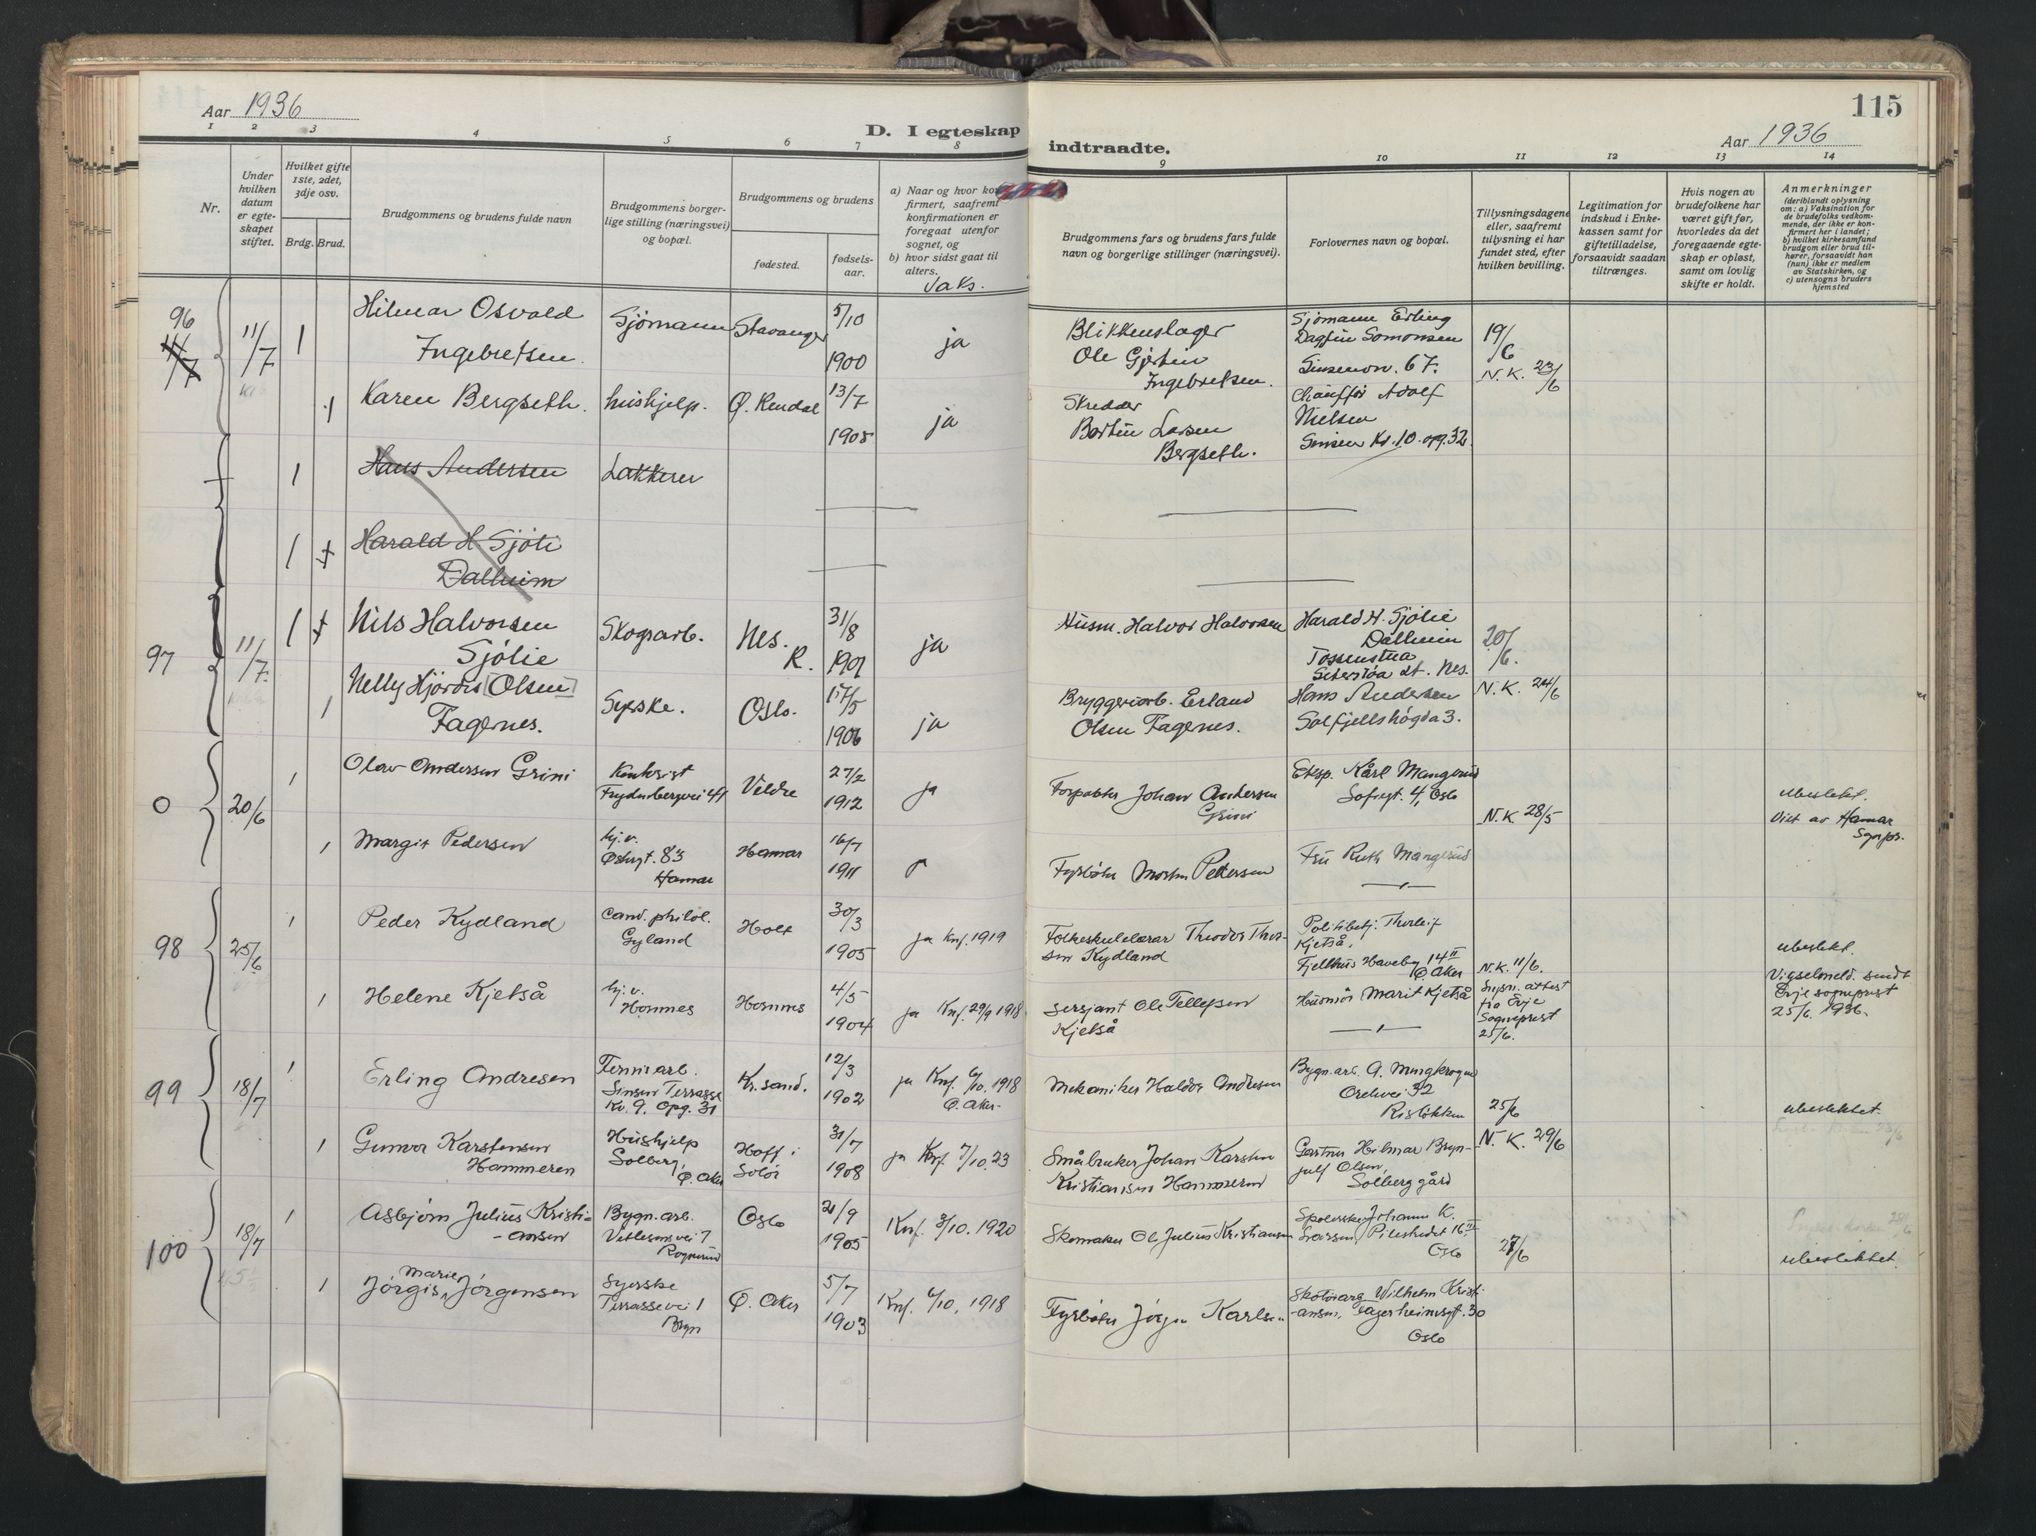 Aar 1936
D. I egteskap
indtraadte.
115
Aar 1936
1 2 3 4 5 6 7 8 9 10 11 12 13 14
Nr.
Under
hvilken
datum
er egte-
skapet
stiftet.
Hvilket gifte
1ste, 2det,
3dje osv.
Brdg. Brud.
Brudgommens og brudens fulde navn
Brudgommens borger-
lige stilling (næringsvei)
og bopæl.
Brudgommens og brudens
fødested.
fødsels-
aar.
a) Naar og hvor kon-
firmert, saafremt
konfirmationen er
foregaat utenfor
sognet, og
b) hvor sidst gaat til
alters.
Vaks.
Brudgommens fars og brudens fars fulde
navn og borgerlige stillinger (næringsvei).
Forlovernes navn og bopæl.
Tillysningsdagene
eller, saafremt
tillysning ei har
fundet sted, efter
hvilken bevilling.
Legitimation for
indskud i Enke-
kassen samt for
giftetilladelse,
forsaavidt saadan
tiltrænges.
Hvis nogen av
brudefolkene har
været gift før,
hvorledes da det
foregaaende egte-
skap er opløst,
samt om lovlig
skifte er holdt.
Anmerkninger
(deriblandt oplysning
om: a) Vaksination for
de brudefolks vedkom-
mende, der ikke er kon-
firmert her i landet;
b) hvilket kirkesamfund
brudgom eller brud til-
hører, forsaavidt han
(hun) ikke er medlem
av Statskirken, og
c) utensogns bruders
hjemsted
96
11/7
11/7
1
Hilmar Osvald
Ingebretsen.
Sjömann
Stavanger
5/10
1900
ja
Blikkenslager
Ole Gjertin
Ingebretsen.
Sjömann Erling
Dagfin Somonsen
Sinsenv. 67.
19/6
N.K. 23/6
1
Karen Bergseth.
hushjelp.
Ø. Rendal
13/7
1908
ja
Skredder
Bertin Larsen
Bergseth.
Chauffør Adolf
Nielsen
Sinsen Kv. 10 opg. 32.
1
Hans Andersen
Lakkerer
1
Harald H Sjöli
Dalheim
97
11/7.
1
Nils Halvorsen
Sjölie
Skogsarb.
Nes.
R.
31/8
1901
ja
Husm. Halvor Halvorsen
Harald H. Sjölie
Dalheim
Tossenstua
Seterstøa st. Nes.
20/6.
N.K. 24/6
1
Nelly Hjördis [Olsen]
Fagernes.
Syerske.
Oslo.
17/5
1906
ja
Bryggeriarb. Erland
Olsen Fagernes.
Hans Andersen
Solfjellshögda 3.
0
20/6
1
Olav Andersen Grini
Kontorist
Frydenbergvei 44
Veldre
27/2
1912
ja
Forpakter Johan Andersen
Grini
Eksp. Kårl Mangerud
Sofiegt. 4, Oslo
N.K 28/5
ubeslekt.
Viet av Hamar
Sognpr.
1
Margit Pedersen
hj. v.
Østregt. 83
Hamar
Hamar
16/7
1911
Fyrbøter Morten Pettersen
Fru Ruth Mangerud
98
25/6
1
Peder Kydland
Cand. philol.
Gyland
Holt
30/3
1905
ja Knf. 1919
Folkeskulelærar Theodor Thor-
sen Kydland
Politibetj. Thorleif
Kjetså,
Fjellhus Haveby 14 II
Ø. Aker
N.K. 11/6.
ubeslekt.
Vigselmeld. sendt
Evje sogneprest
25/6. 1936.
1
Helene Kjetså
hj. v.
Hornnes
Hornnes
4/5
1904
ja Knf. 29/9 1918
Sersjant Ole Tellefsen
Kjetså
Husmor Marit Kjetså
Lysn. attest
fra Evje
Sogneprest
25/6.
99
18/7
1
Erling Andresen
Fernisarb.
Sinsen Terrasse
Kv. 9. Opg. 31
Kr.sand.
12/3
1902
ja Knf. 6/10. 1918
Ø. Aker
Mekaniker Haldor Andresen
Bygn. arb. A. Mengkrogen
Orehvei 32
Risløkken
25/6
ubeslektet.
1
Gunvor Karstensen
Hammeren
Hushjelp
Solberg,
Ø. Aker
Hoff i
Solør
31/7
1908
ja Knf. 7/10. 23
Småbruker Johan Karsten
Kristiansen Hammeren
Gartner Hilmar Bryn-
julf Olsen,
Solberg gård
N.K. 29/6
100
18/7
1
Asbjørn Julius Kristi-
-ansen
Bygn. arb.
Vetlesensvei 7
Rognerud
Oslo
21/9
1905
Knf. 3/10. 1920
Skomaker Ole Julius Kristiansen
Johanne K.
Larssen, Pilestredet 16 III
Oslo
27/6
ubeslektet.
1
Jørgis Marie Jørgensen
Syerske
Terrassevei 1
Bryn
Ø. Aker
5/7
1903
Knf. 6/10. 1918
Fyrbøter Jørgen Karlsen
Skotøiarb. Wilhelm Kristi-
-ansen, Lagerheimsgt. 30
Oslo